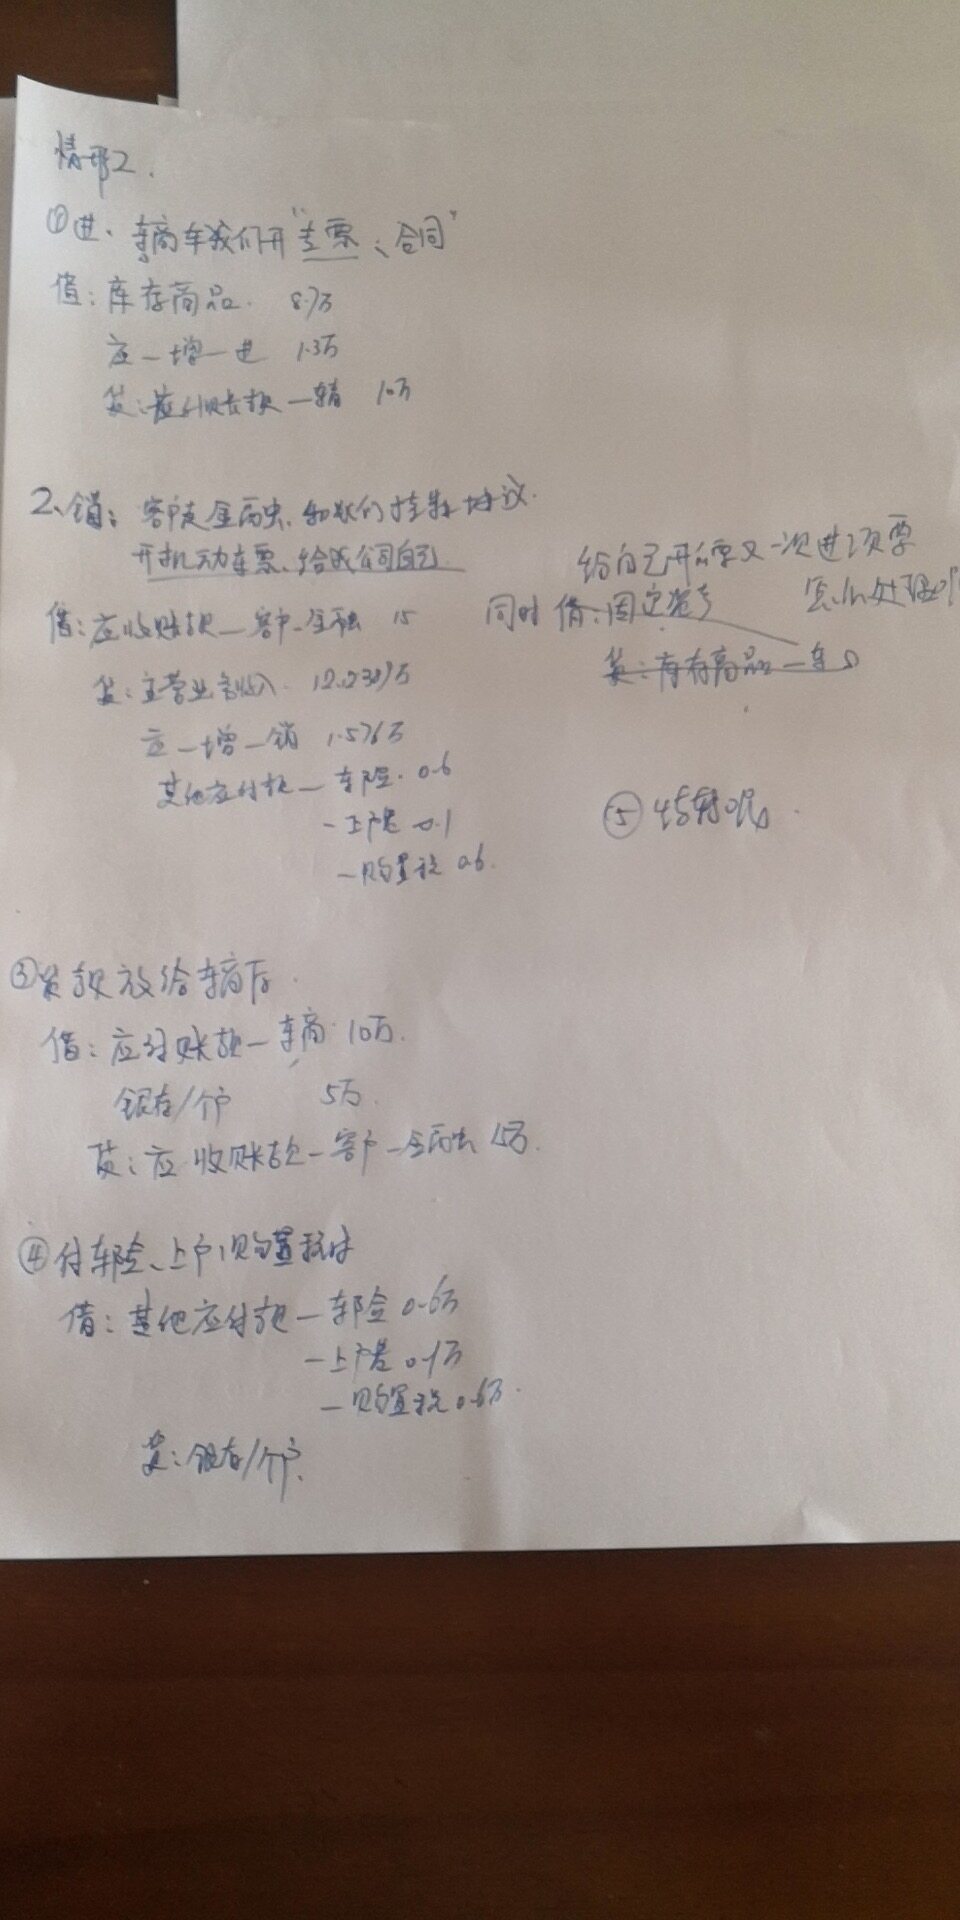 情形2.
①进、车商给我们开“专票、合同”
借:库存商品. 8.7万
应一增一进 1.3万
贷:应付账款一车商 10万
2、销:客户走金融, 和我们挂靠协议.
开机动车票、给我公司自己.
给自己开票又一次进项票
怎么处理呢
借:应收账款一客户-金融 15
同时 借:固定资产
贷:库存商品一车
贷:主营业务收入. 12.1239万
应一增一销 1.576万
其他应付款一车险. 0.6
-上户费 0.1
一购置税 0.6.
⑤结转呢
③贷款放给车商后.
借:应付账款一车商 10万.
银存/个户 5万.
贷:应收账款一客户-金融 15万.
④付车险、上户、购置税时
借:其他应付款一车险 0.6万
-上户费 0.1万
一购置税 0.6万.
贷:银存/个户.